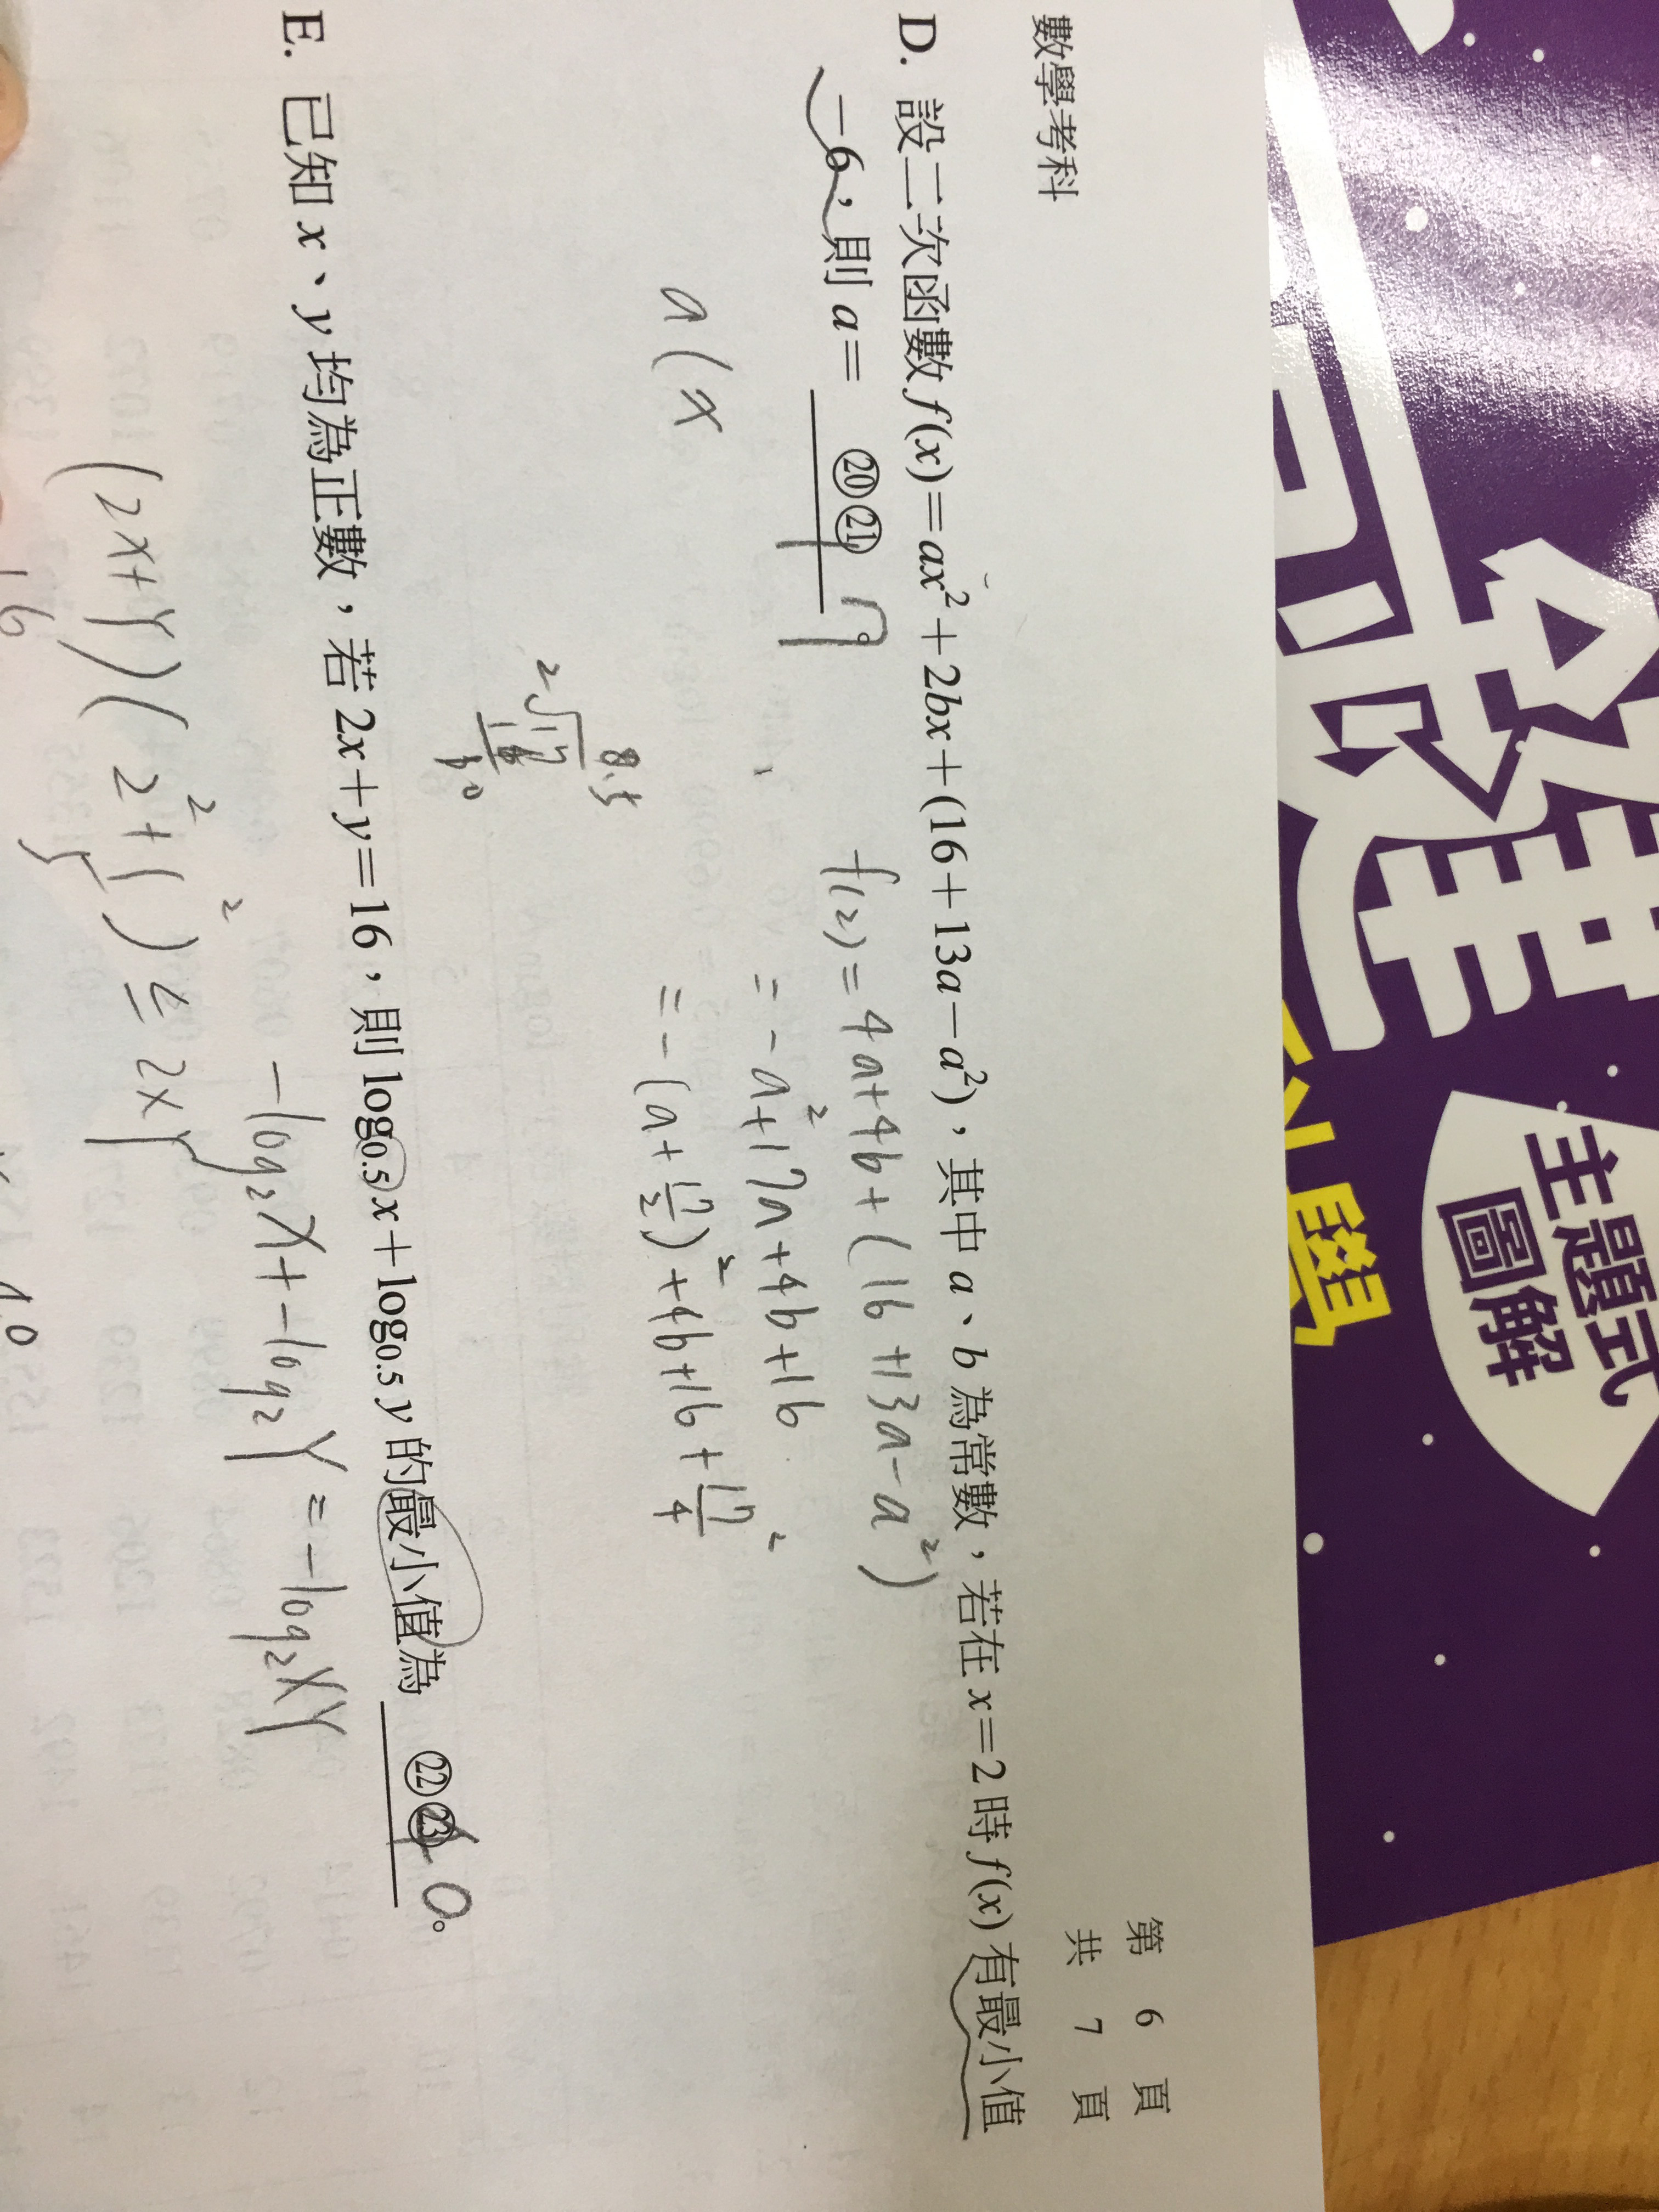 關鍵
公式學
主題式
圖解
第 6 頁
共 7 頁
數學考科
D. 設二次函數 f(x)=ax²+2bx+(16+13a−a²),其中 a、b 為常數,若在 x=2 時 f(x) 有最小值
−6,則 a= ⑳㉑ 。
f(2)=4a+4b+(16+13a−a²)
=−a²+17a+4b+16
=−(a+17/2)²+4b+16+17/4²
a(x
8.5
2√17
16
10
E. 已知 x、y 均為正數,若 2x+y=16,則 log0.5 x+log0.5 y 的最小值為 ㉒㉓ 。
0
−log₂x+−log₂y=−log₂xy
(2x+y)(2²+1²)≥2xy
16
5